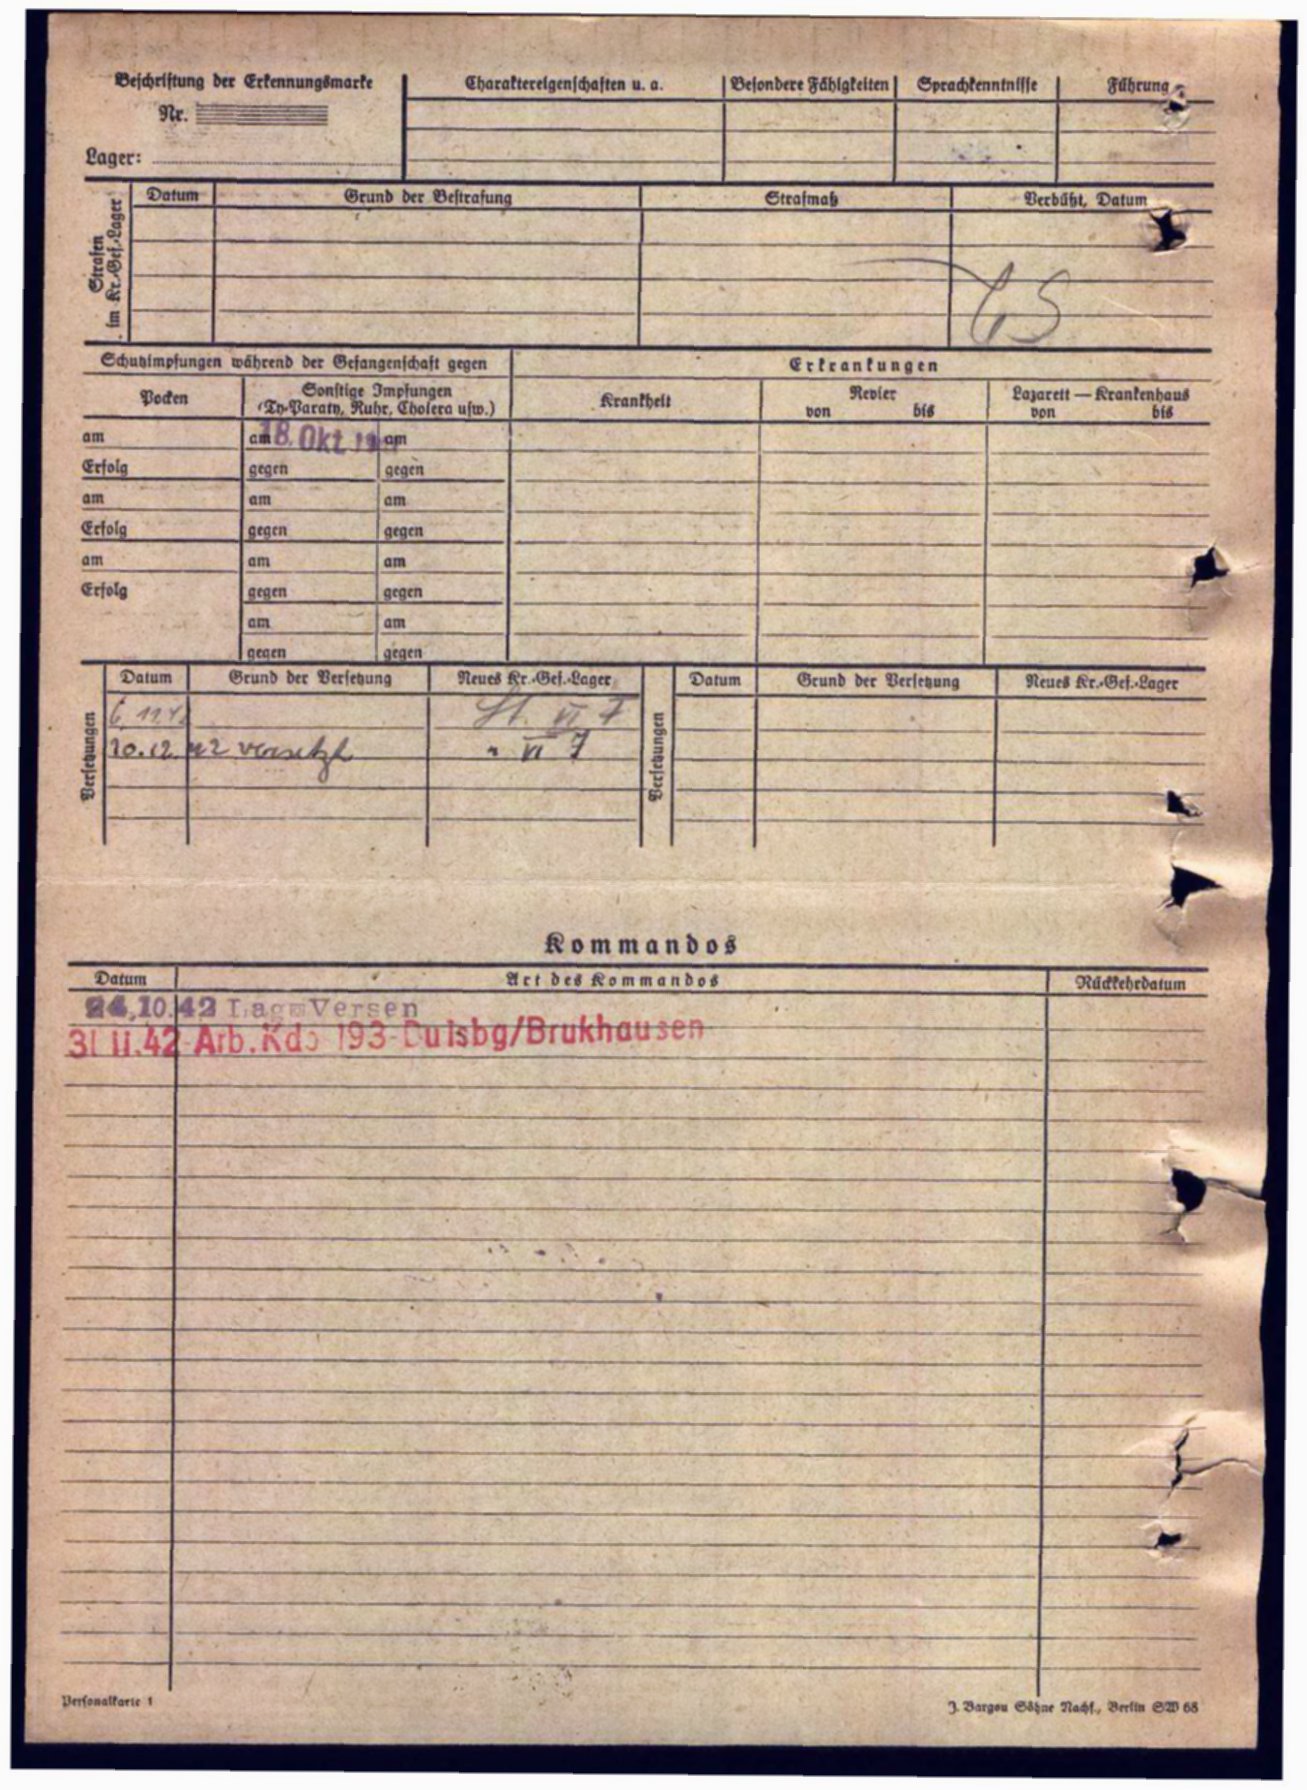 Beschriftung der Erkennungsmarke
Nr.
Lager:
Charaktereigenschaften u. a.
Besondere Fähigkeiten
Sprachkenntnisse
Führung
Strafen im Kr.-Gef.-Lager
Datum
Grund der Bestrafung
Strafmaß
Verbüßt, Datum
Schutzimpfungen während der Gefangenschaft gegen
Erkrankungen
Pocken
Sonstige Impfungen
(Ty-Paraty, Ruhr, Cholera usw.)
Krankheit
Revier
von bis
Lazarett — Krankenhaus
von bis
am am 18. Okt. am
Erfolg gegen gegen
am am am
Erfolg gegen gegen
am am am
Erfolg gegen gegen
am am
gegen gegen
Versetzungen
Datum Grund der Versetzung Neues Kr.-Gef.-Lager
6.11.42 St. VI F
10.12.42 versetzt " VI J
Versetzungen
Datum Grund der Versetzung Neues Kr.-Gef.-Lager
Kommandos
Datum Art des Kommandos Rückkehrdatum
24.10.42 Lag Versen
31 11.42 Arb.Kdo 193-Duisbg/Brukhausen
Personalkarte 1
J. Bargou Söhne Nachf., Berlin SW 68